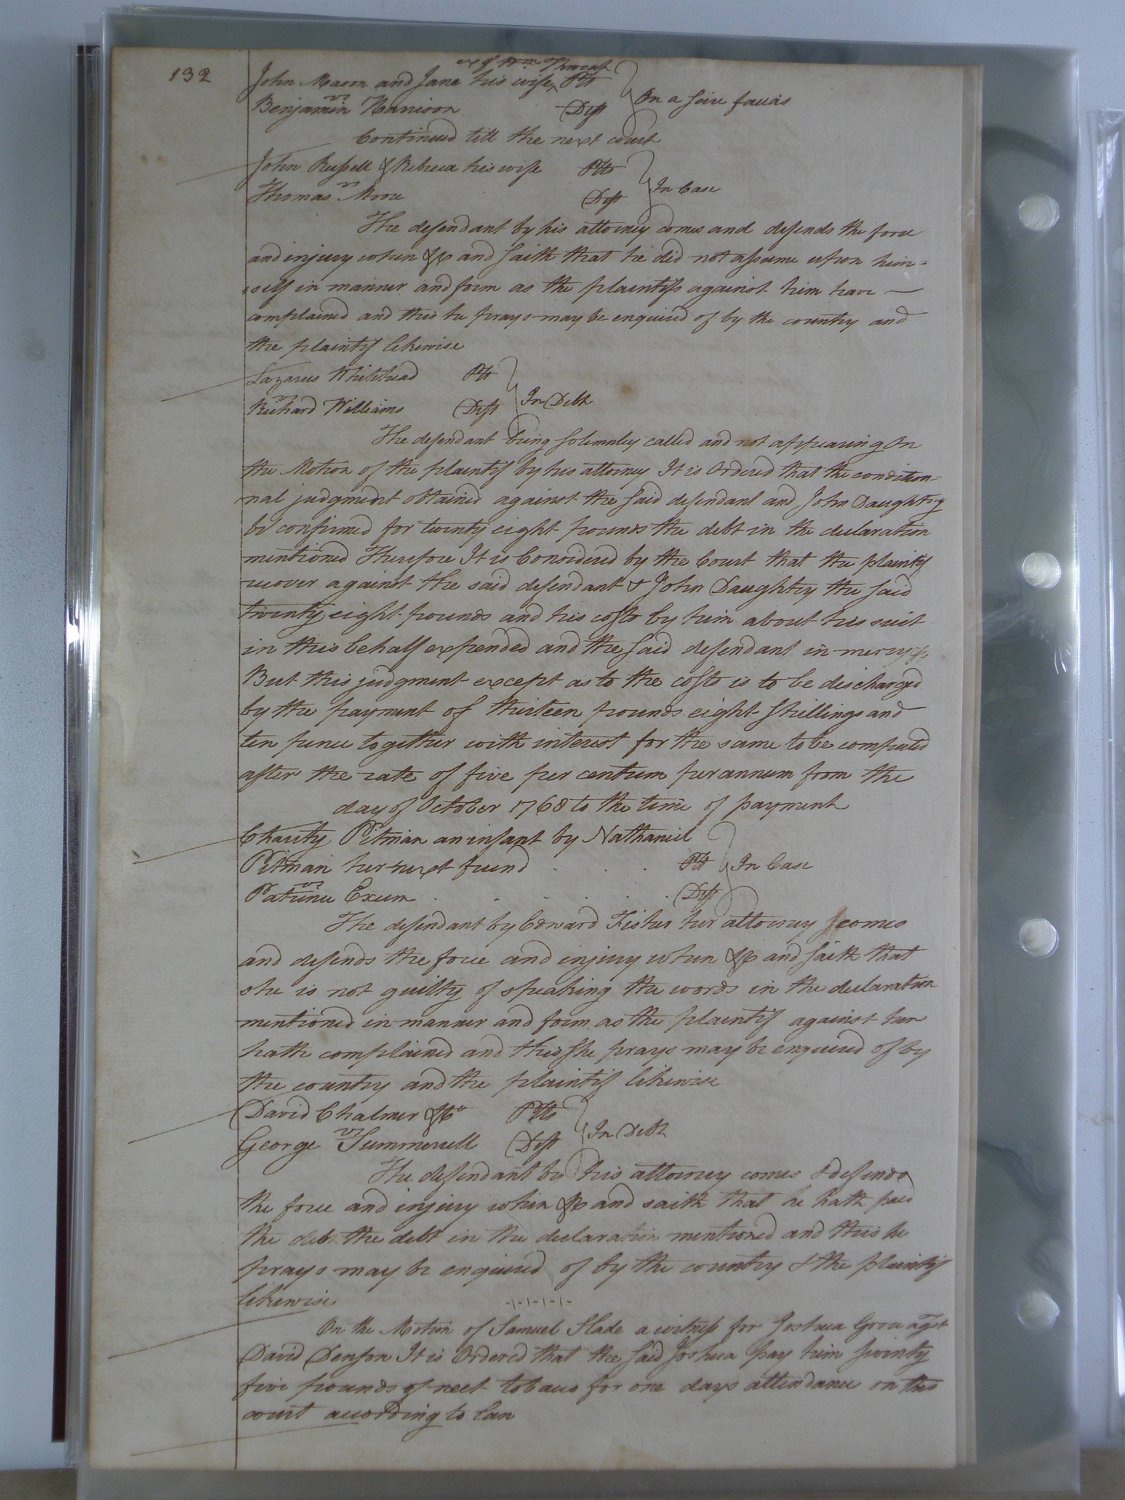 132
exr of Wm Thweat
John Mason and Jane his wife Plt
vs
Benjamin Harrison Deft
On a scire facias
Continued till the next court
John Russell & Rebeca his wife Plts
vs
Thomas Moore Deft
In Case
The defendant by his attorney comes and defends the force
and injury when &c and saith that he did not assume upon him-
self in manner and form as the plaintifs against him have
complained and this he prays may be enquired of by the country and
the plaintif likewise
Lazarus Whitehead Plt
vs
Richard Williams Deft
In Debt
The defendant being solemnley called and not appearing On
the Motion of the plaintif by his attorney It is Ordered that the condition-
nal judgment obtained against the said defendant and John Daughtry
be confirmed for twenty eight pounds the debt in the declaration
mentioned Therefore It is Considered by the Court that the plaintif
recover against the said defendant & John Daughtry the said
twenty eight pounds and his costs by him about his suit
in this behalf expended and the said defendant in mercy &c
But this judgment except as to the costs is to be discharged
by the payment of thirteen pounds eight shillings and
ten pence together with interest for the same to be computed
after the rate of five per centum per annum from the
day of October 1768 to the time of payment
Charity Pitman an infant by Nathaniel
Pitman her next friend Plt
vs
Patience Exum Deft
In Case
The defendant by Edward Fisher her attorney comes
and defends the force and injury when &c and saith that
she is not guilty of speaking the words in the declaration
mentioned in manner and form as the plaintif against her
hath complained and this she prays may be enquired of by
the country and the plaintif likewise
David Chalmer & Co Plts
vs
George Summerell Deft
In Debt
The defendant by his attorney comes & defends
the force and injury when &c and saith that he hath paid
the deb. the debt in the declaration mentioned and this he
prays may be enquired of by the country & the plaintif
likewise
On the Motion of Samuel Slade a witness for Joshua Grow agst
David Denson It is Ordered that the said Joshua pay him twenty
five pounds of neet tobacco for one days attendance on this
court according to law